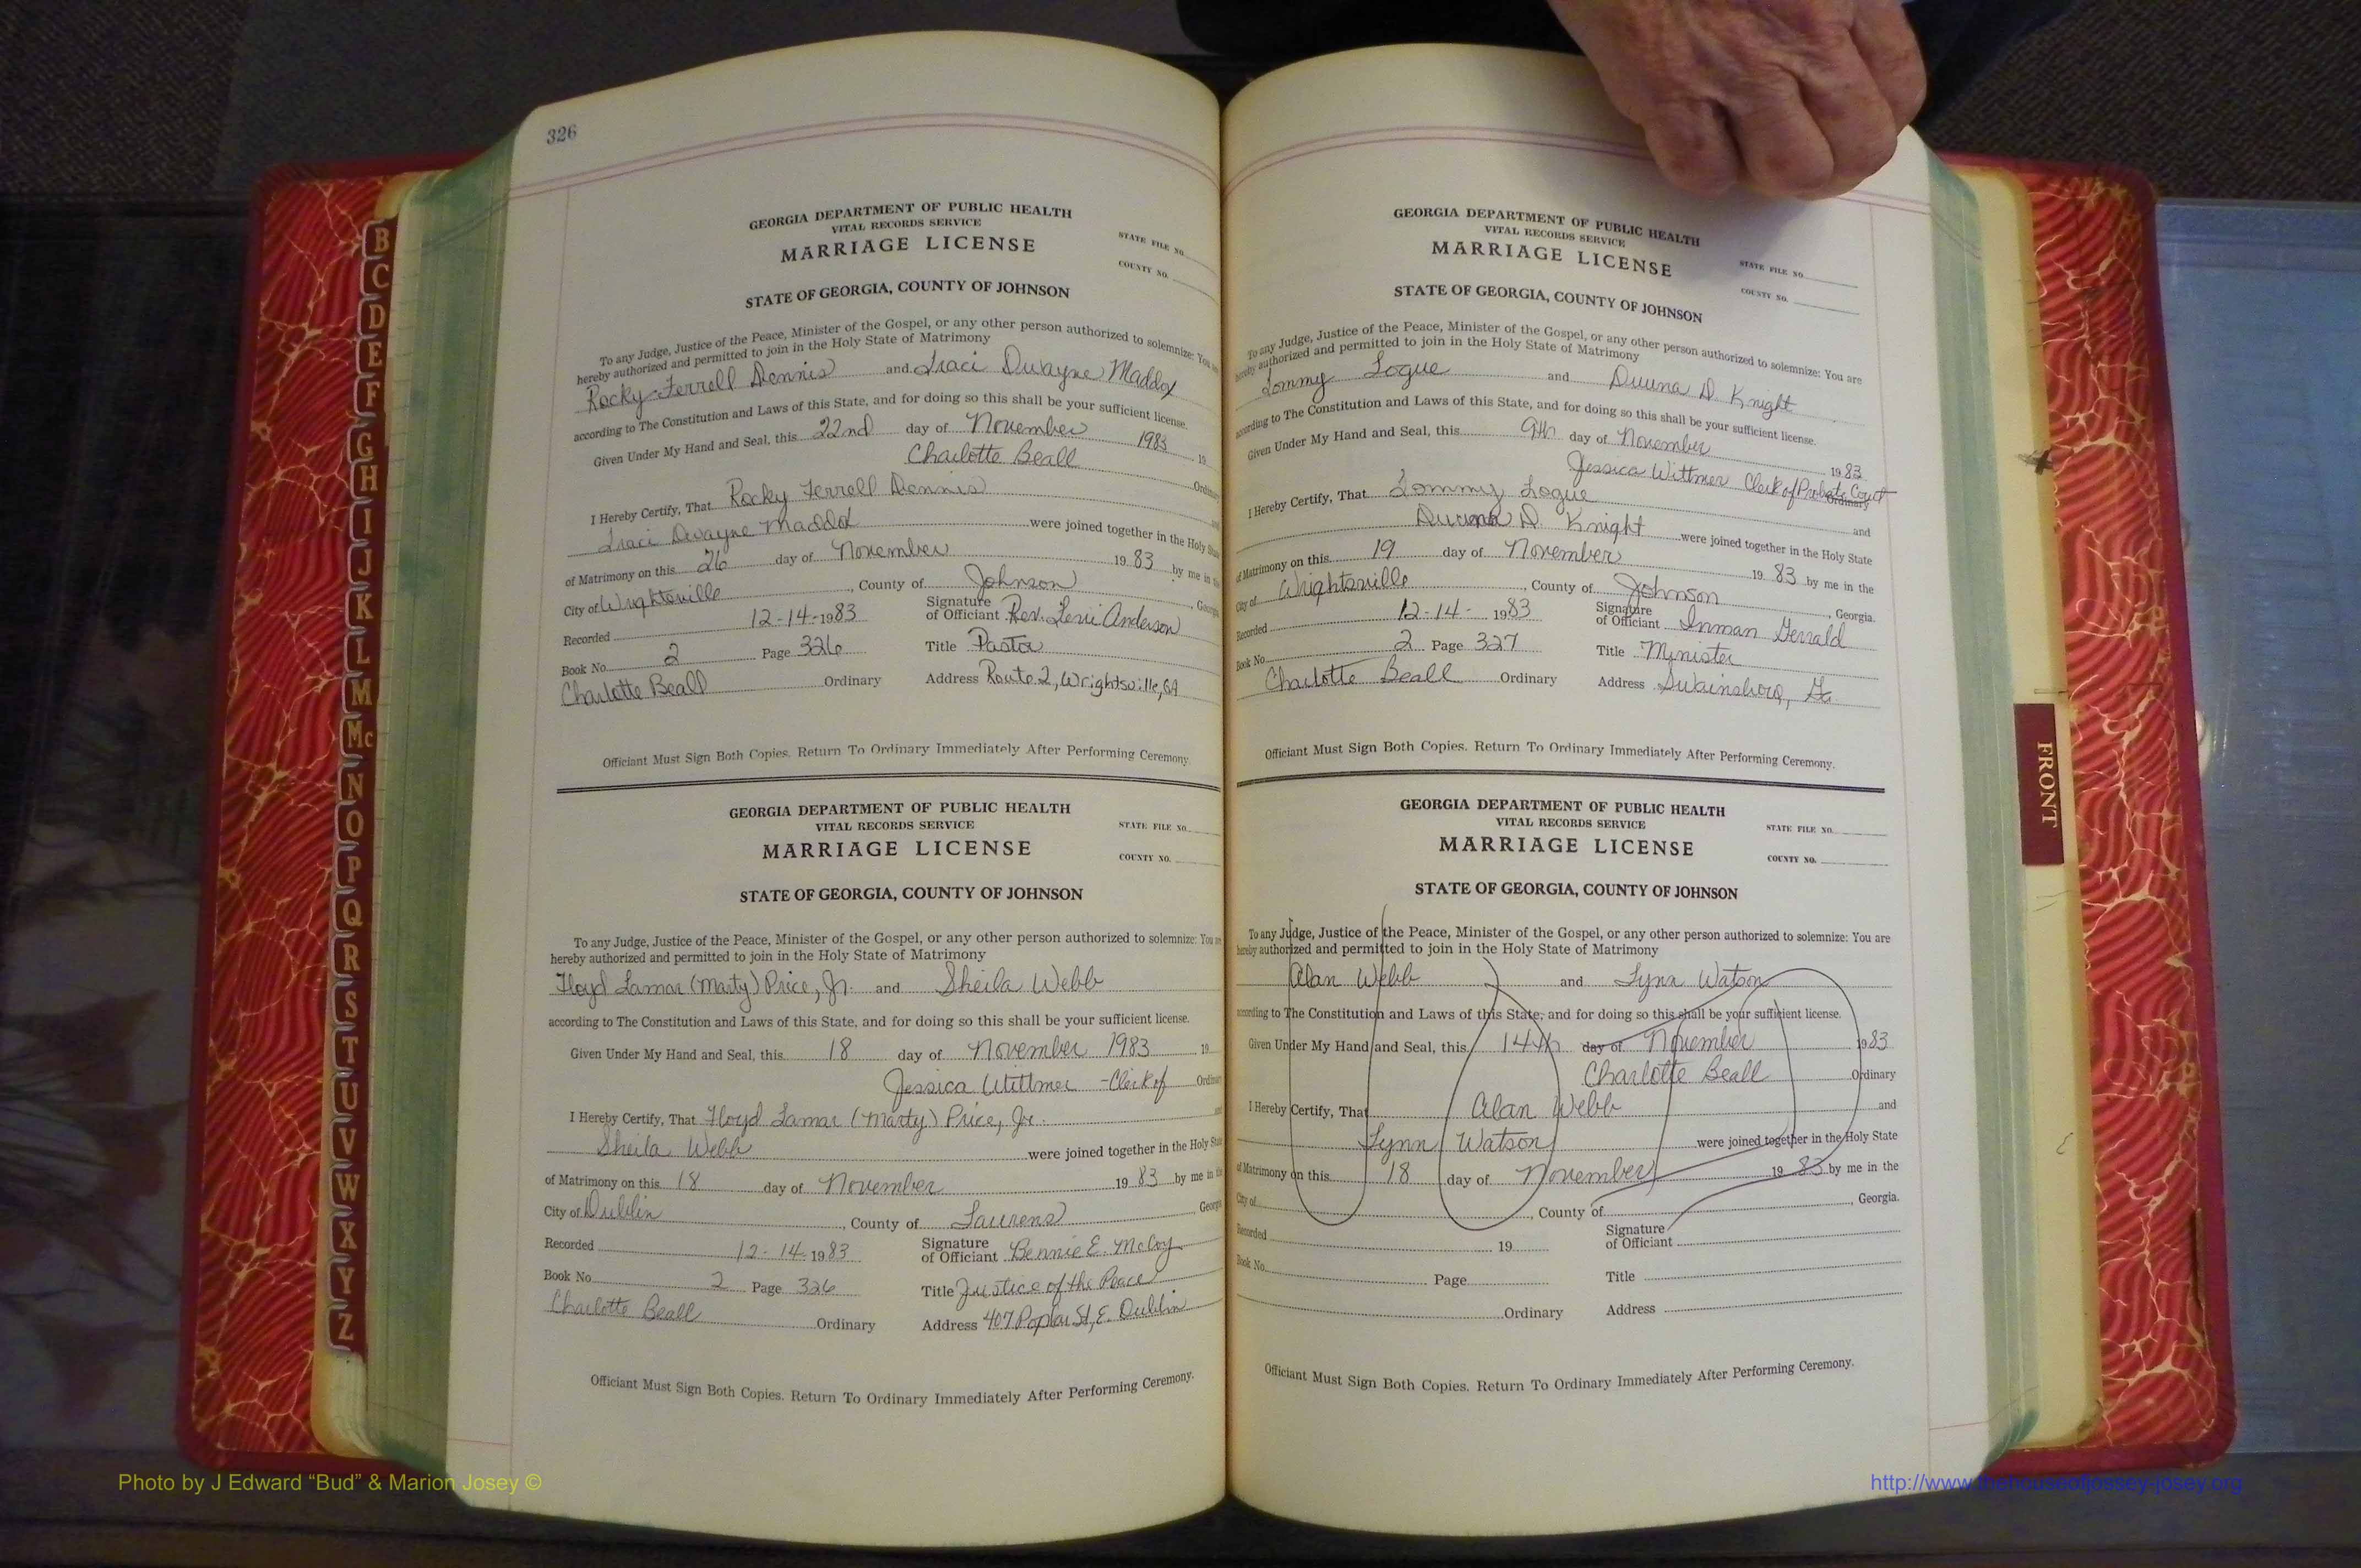 326
GEORGIA DEPARTMENT OF PUBLIC HEALTH
VITAL RECORDS SERVICE
MARRIAGE LICENSE
STATE FILE NO.
COUNTY NO.
STATE OF GEORGIA, COUNTY OF JOHNSON
To any Judge, Justice of the Peace, Minister of the Gospel, or any other person authorized to solemnize: You
hereby authorized and permitted to join in the Holy State of Matrimony
Rocky Ferrell Dennis and Traci Dwayne Maddox
according to The Constitution and Laws of this State, and for doing so this shall be your sufficient license.
Given Under My Hand and Seal, this 22nd day of November 1983 19
Charlotte Beall Ordinary
I Hereby Certify, That Rocky Ferrell Dennis
Traci Dwayne Maddox were joined together in the Holy State
of Matrimony on this 26 day of November 1983 by me in the
City of Wrightsville, County of Johnson, Georgia
Recorded 12-14-1983 Signature of Officiant Rev. Anderson
Book No. 2 Page 326 Title Pastor
Charlotte Beall Ordinary Address Route 2, Wrightsville, GA
Officiant Must Sign Both Copies. Return To Ordinary Immediately After Performing Ceremony.
GEORGIA DEPARTMENT OF PUBLIC HEALTH
VITAL RECORDS SERVICE
MARRIAGE LICENSE
STATE FILE NO.
COUNTY NO.
STATE OF GEORGIA, COUNTY OF JOHNSON
To any Judge, Justice of the Peace, Minister of the Gospel, or any other person authorized to solemnize: You
hereby authorized and permitted to join in the Holy State of Matrimony
Floyd Lamar (Marty) Price, Jr. and Sheila Webb
according to The Constitution and Laws of this State, and for doing so this shall be your sufficient license.
Given Under My Hand and Seal, this 18 day of November 1983 19
Jessica Wittmer - Clerk of Ordinary
I Hereby Certify, That Floyd Lamar (Marty) Price, Jr. and
Sheila Webb were joined together in the Holy State
of Matrimony on this 18 day of November 1983 by me in the
City of Dublin, County of Laurens Georgia
Recorded 12-14-1983 Signature of Officiant Bennie E. McCoy
Book No. 2 Page 326 Title Justice of the Peace
Charlotte Beall Ordinary Address 407 Poplar St, E. Dublin
Officiant Must Sign Both Copies. Return To Ordinary Immediately After Performing Ceremony.
GEORGIA DEPARTMENT OF PUBLIC HEALTH
VITAL RECORDS SERVICE
MARRIAGE LICENSE
STATE FILE NO.
COUNTY NO.
STATE OF GEORGIA, COUNTY OF JOHNSON
To any Judge, Justice of the Peace, Minister of the Gospel, or any other person authorized to solemnize: You are
hereby authorized and permitted to join in the Holy State of Matrimony
Tommy Logue and D. Knight
according to The Constitution and Laws of this State, and for doing so this shall be your sufficient license.
Given Under My Hand and Seal, this 9th day of November 1983
Jessica Wittmer Clerk of Probate Court Ordinary
I Hereby Certify, That Tommy Logue and
D. Knight were joined together in the Holy State
of Matrimony on this 19 day of November 1983 by me in the
City of Wrightsville, County of Johnson, Georgia.
Recorded 12-14-1983 Signature of Officiant Inman Gerrald
Book No. 2 Page 327 Title Minister
Charlotte Beall Ordinary Address Swainsboro, Ga.
Officiant Must Sign Both Copies. Return To Ordinary Immediately After Performing Ceremony.
GEORGIA DEPARTMENT OF PUBLIC HEALTH
VITAL RECORDS SERVICE
MARRIAGE LICENSE
STATE FILE NO.
COUNTY NO.
STATE OF GEORGIA, COUNTY OF JOHNSON
To any Judge, Justice of the Peace, Minister of the Gospel, or any other person authorized to solemnize: You are
hereby authorized and permitted to join in the Holy State of Matrimony
Alan Webb and Lynn Watson
according to The Constitution and Laws of this State, and for doing so this shall be your sufficient license.
Given Under My Hand and Seal, this 14th day of November 1983
Charlotte Beall Ordinary
I Hereby Certify, That Alan Webb and
Lynn Watson were joined together in the Holy State
of Matrimony on this 18 day of November 1983 by me in the
City of, County of, Georgia.
Recorded 19 Signature of Officiant
Book No. Page Title
Ordinary Address
Officiant Must Sign Both Copies. Return To Ordinary Immediately After Performing Ceremony.
VOID
B
C
D
E
F
G
H
I
J
K
L
M
Mc
N
O
P
Q
R
S
T
U
V
W
X
Y
Z
FRONT
Photo by J Edward “Bud” & Marion Josey ©
http://www.thehouseofjossey-josey.org